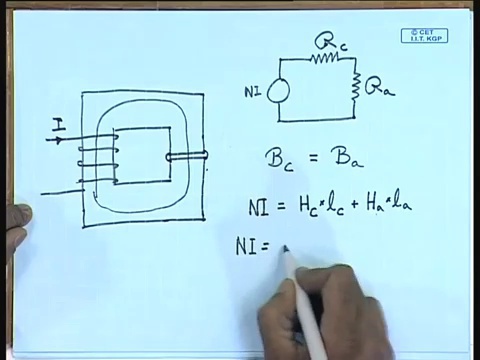 © CET
I.I.T. KGP
I
R_c
NI
R_a
B_c = B_a
NI = H_c * l_c + H_a * l_a
NI =